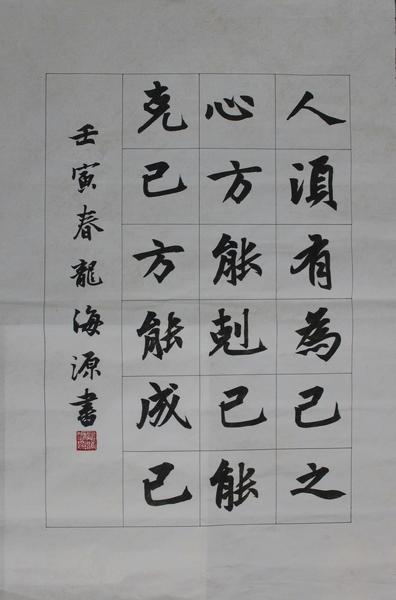 人須有為己之
心方能剋己能
克己方能成己
壬寅春龍海源書